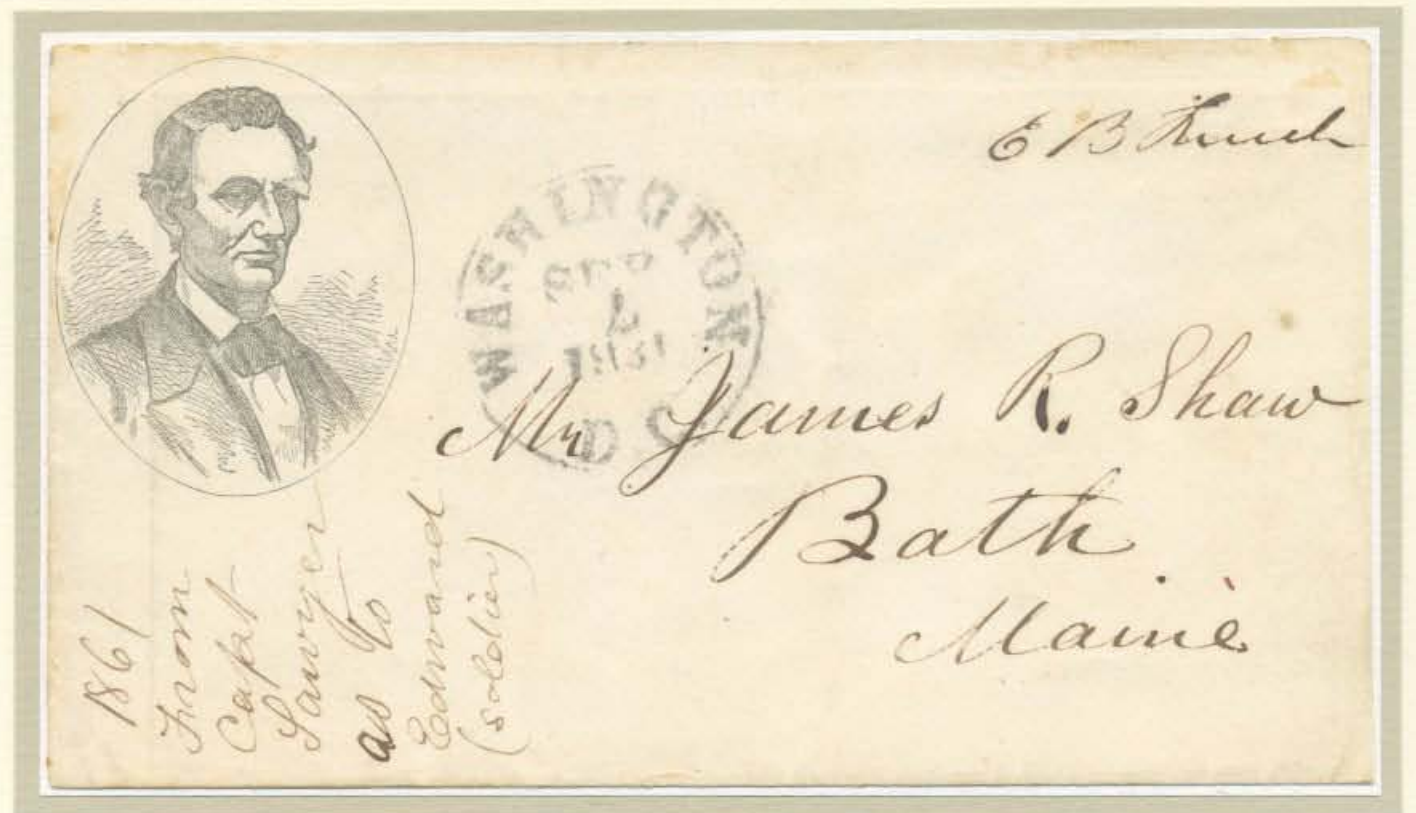 E B French
WASHINGTON
SEP
7
1861
D C
Mr James R. Shaw
Bath
Maine
1861
From
Capt
Sawyer
as to
Edward
(soldier)